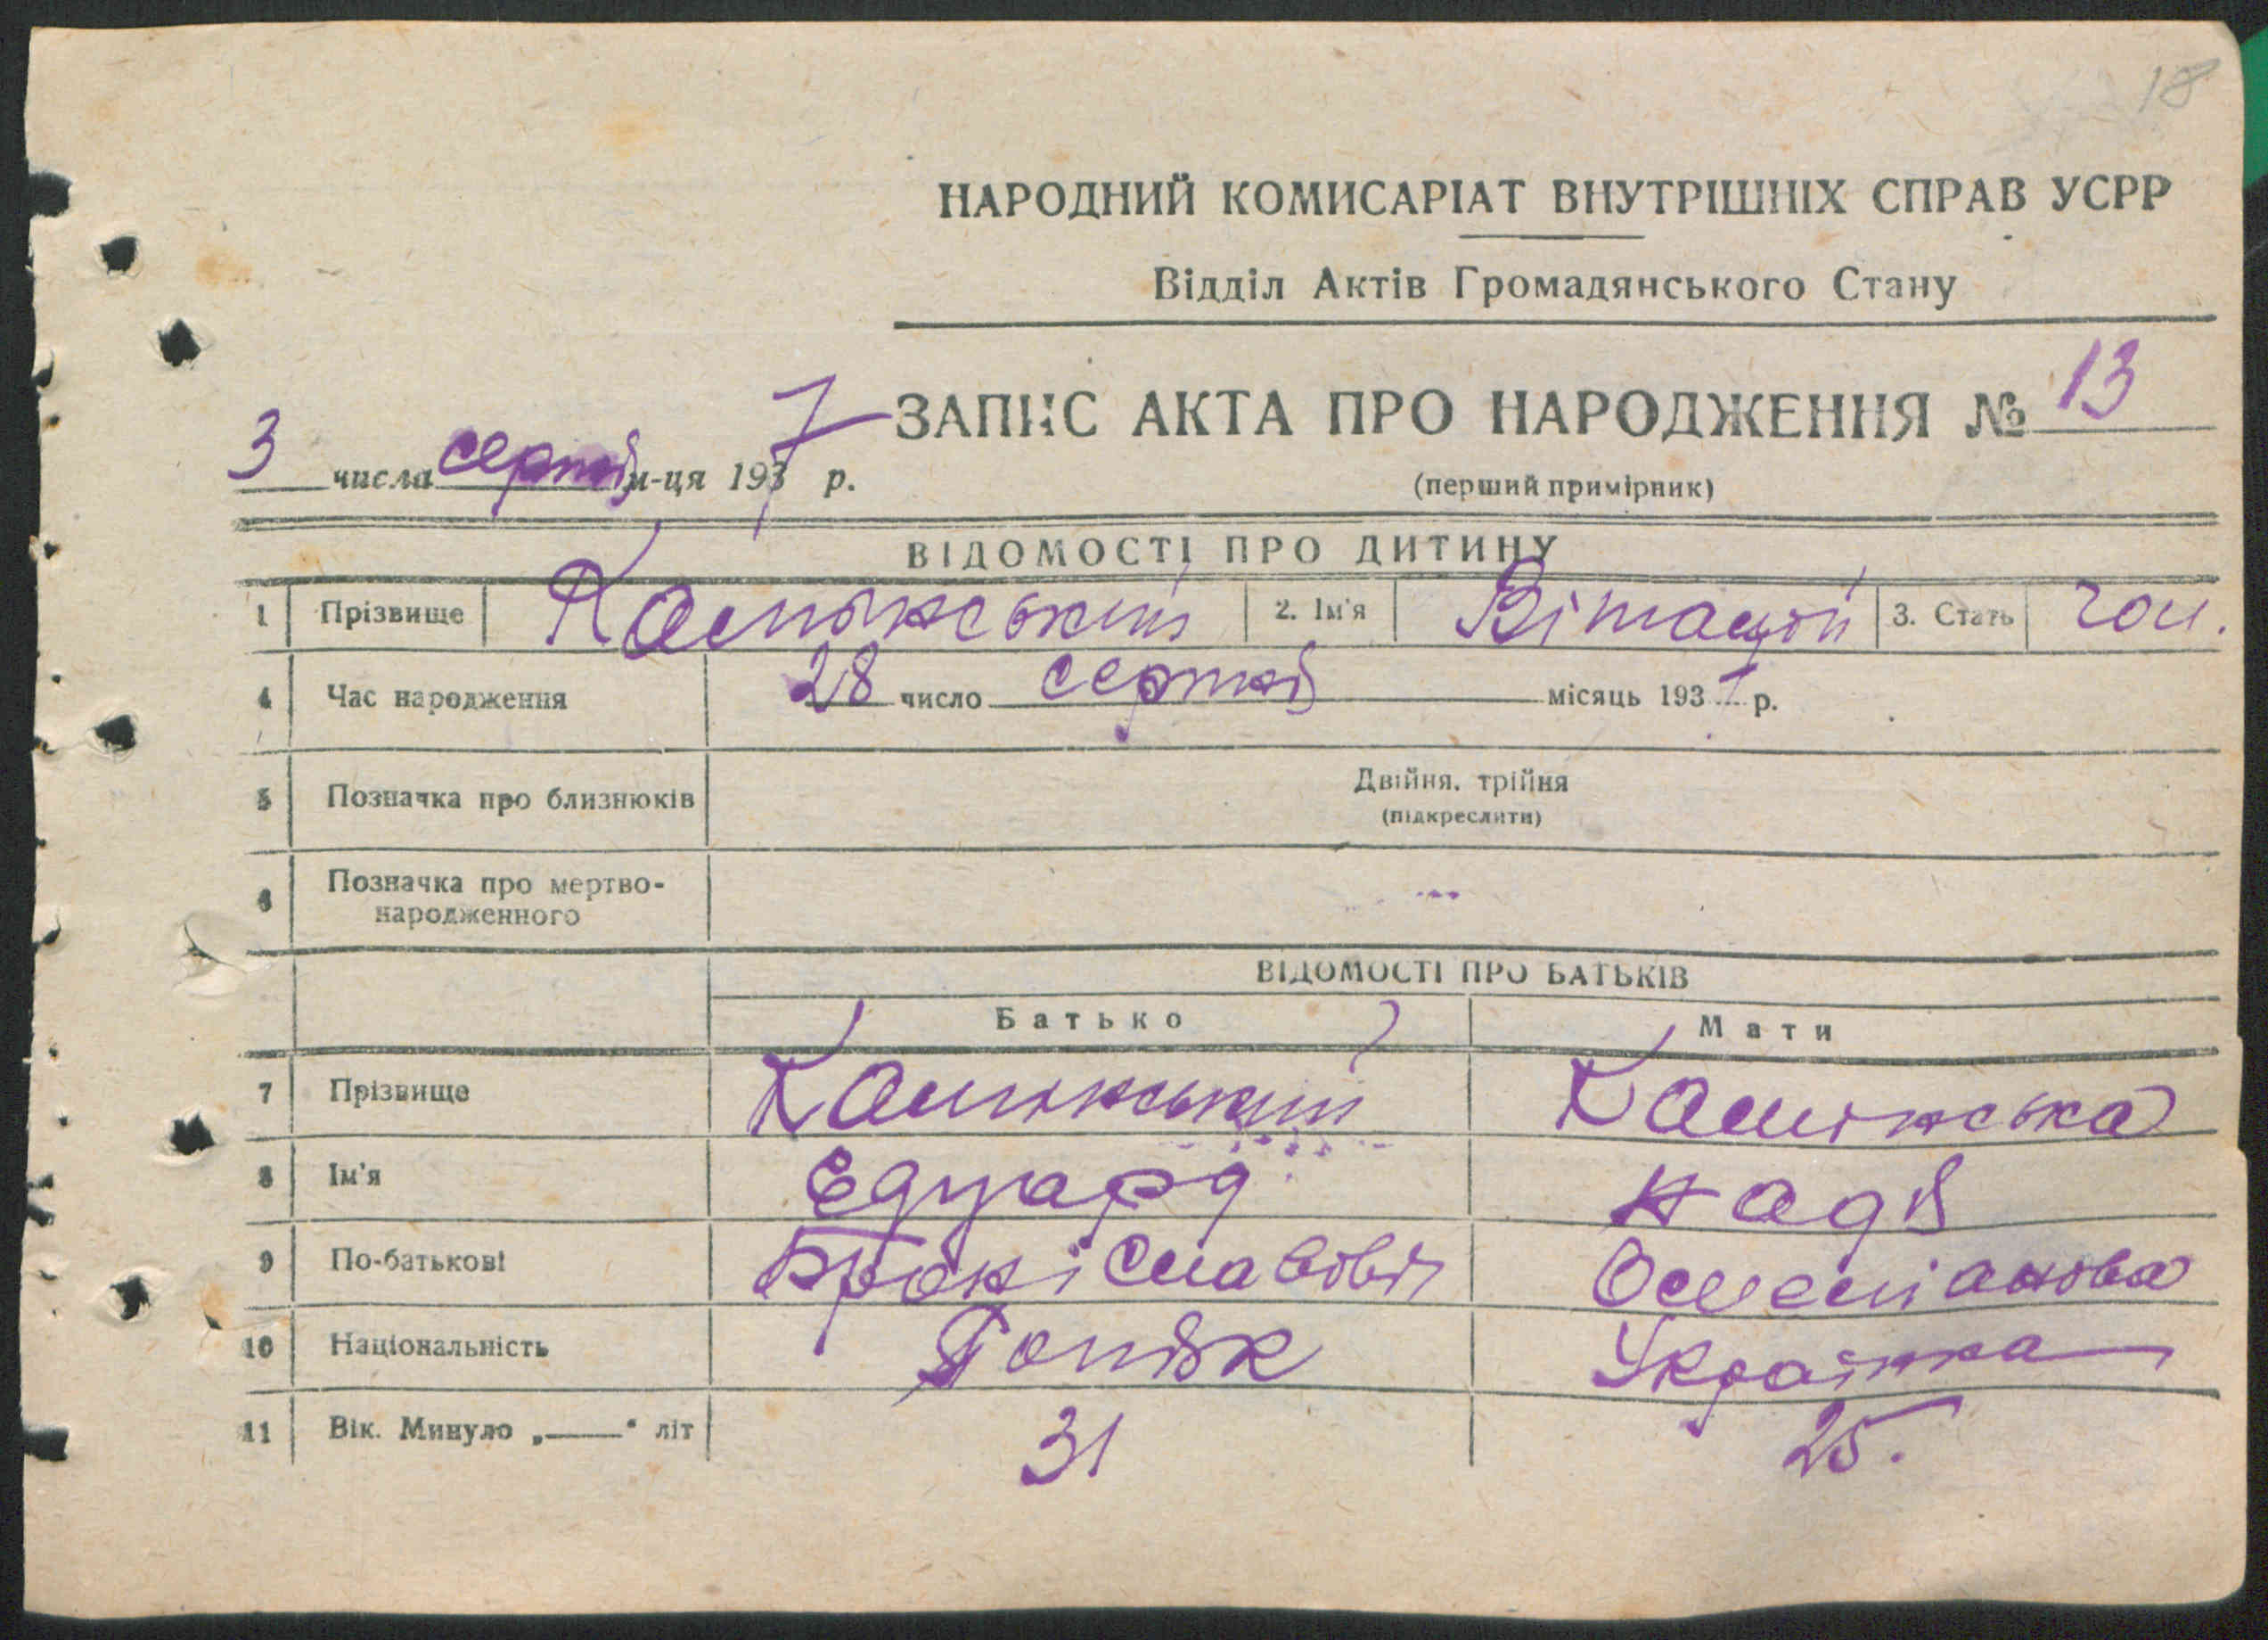 18
НАРОДНИЙ КОМИСАРІАТ ВНУТРІШНІХ СПРАВ УСРР
Відділ Актів Громадянського Стану
ЗАПИС АКТА ПРО НАРОДЖЕННЯ № 13
3 числа серпня м-ця 1937 р.
(перший примірник)
ВІДОМОСТІ ПРО ДИТИНУ
1 Прізвище Камінський 2. Ім'я Віталій 3. Стать чол.
4 Час народження 28 число серпня місяць 1937 р.
5 Позначка про близнюків Двійня, трійня
(підкреслити)
6 Позначка про мертво-
народженного
ВІДОМОСТІ ПРО БАТЬКІВ
Батько Мати
7 Прізвище Камінський Камінська
8 Ім'я Едуард Надя
9 По-батькові Броніславовіч
10 Національність Поляк Українка
11 Вік. Минуло „——“ літ 31 25.